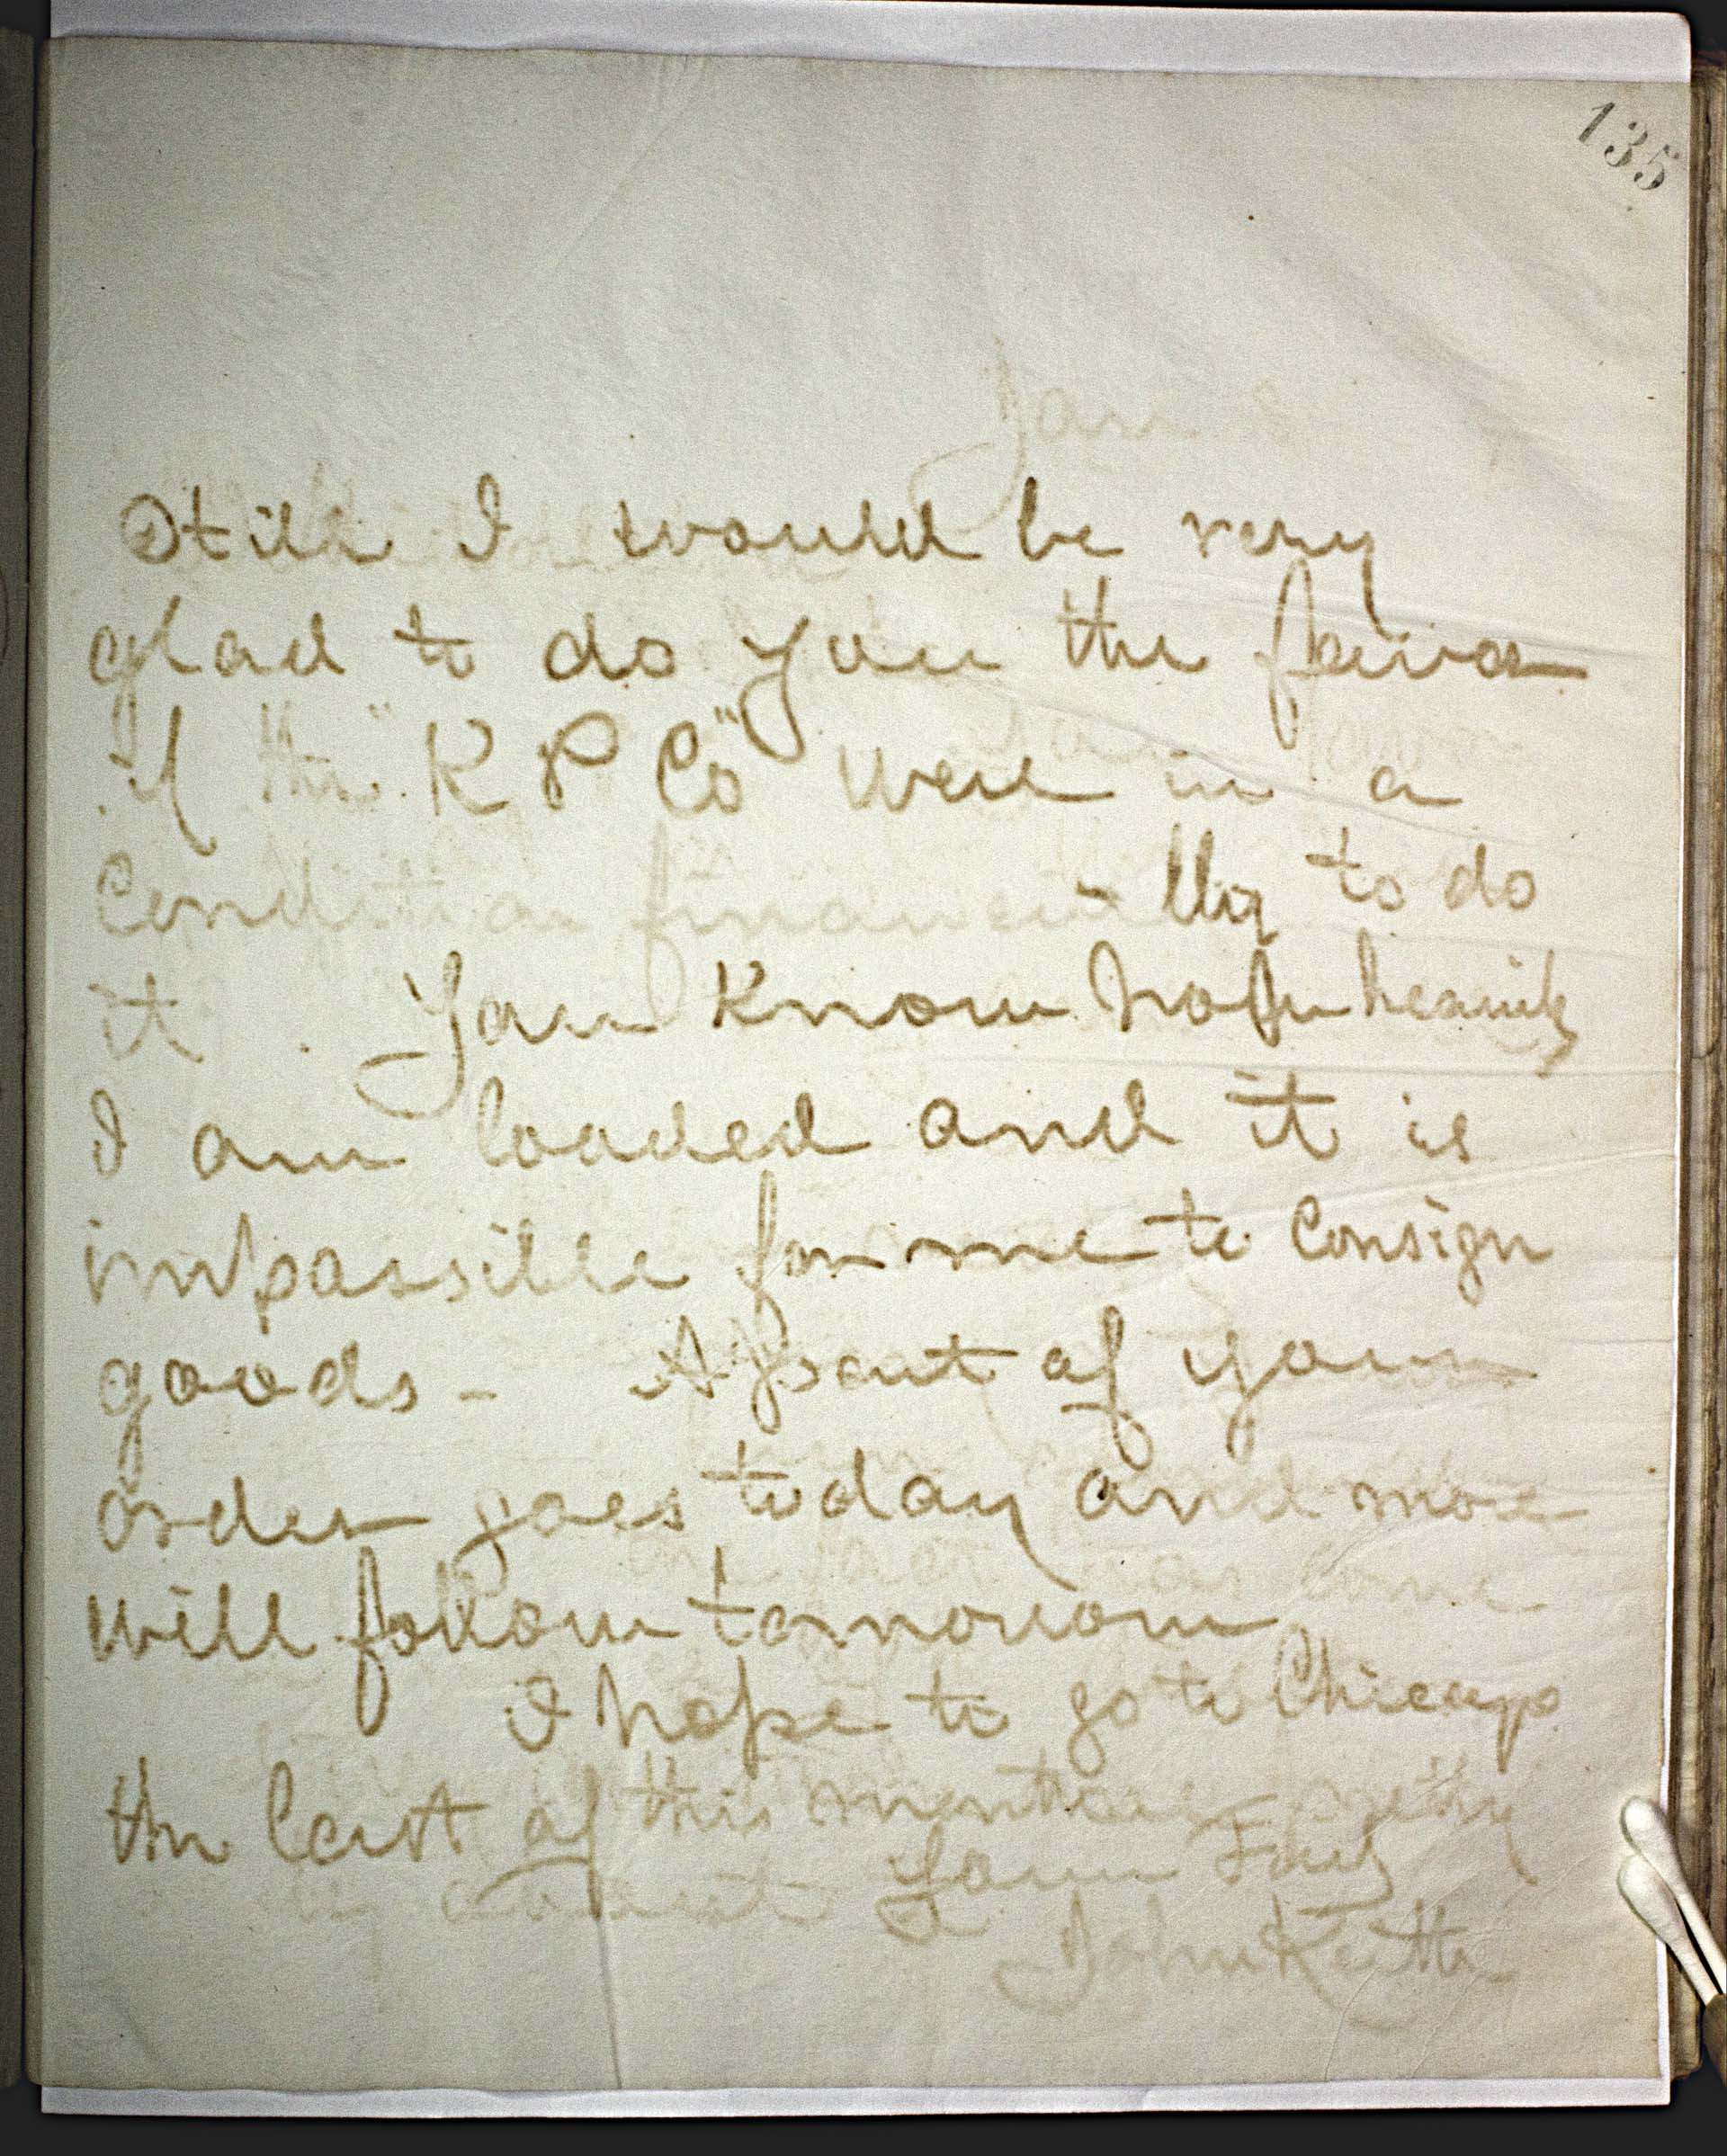 135
Still I would be very
glad to do you the favor
if the "K P Co" were in a
Condition financially to do
it. You Know how heavily
I am loaded and it is
impossible for me to Consign
goods - A part of your
order goes today and more
will follow tomorrow
I hope to go to Chicago
the last of this month
Yours Truly
John Keith